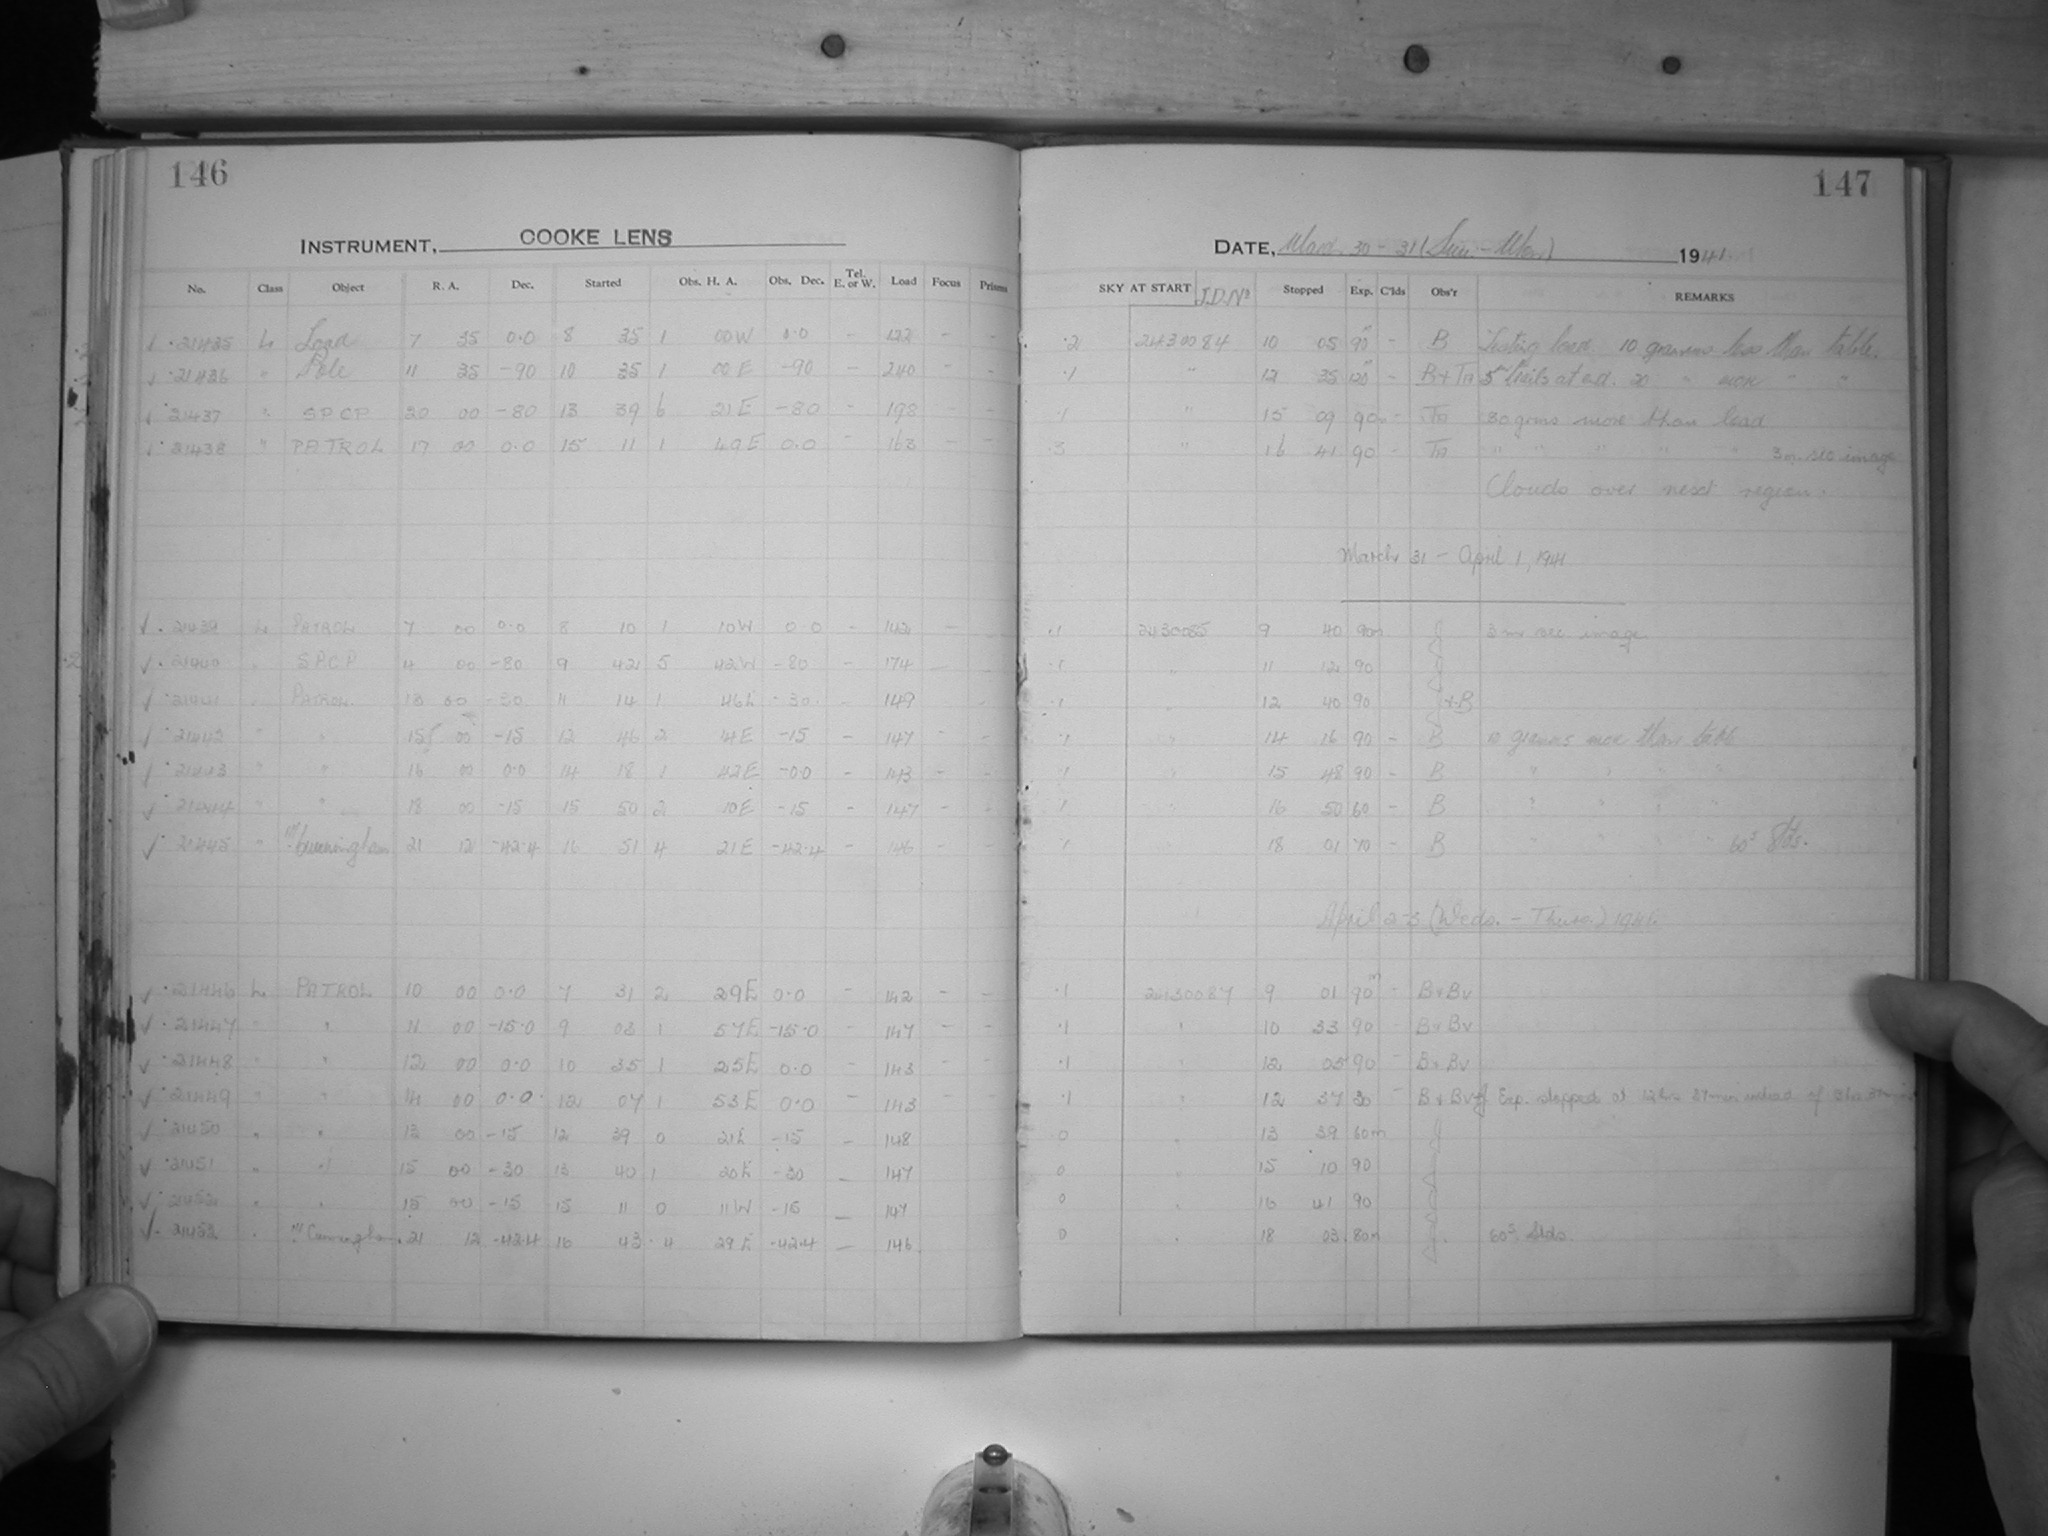 146
INSTRUMENT, COOKE LENS
No. Class Object R. A. Dec. Started Obs. H. A. Obs. Dec. Tel. E. or W. Load Focus Prisms
21435 L Load 7 35 0.0 8 35 1 00W 0.0 - 122 - -
21436 " Pole 11 35 -90 10 35 1 00E -90 - 240 - -
21437 " SPCP 20 00 -80 13 39 6 21E -80 - 198 - -
21438 " PATROL 17 00 0.0 15 11 1 49E 0.0 - 163 - -
21439 L PATROL 7 00 0.0 8 10 1 10W 0.0 - 142 -
21440 " SPCP 4 00 -80 9 42 5 42W -80 - 174 - -
21441 " PATROL 13 00 -30 11 14 1 46E -30 - 149 - -
21442 " " 15 00 -15 12 46 2 14E -15 - 147 - -
21443 " " 16 00 0.0 14 18 1 42E -0.0 - 143 - -
21444 " " 18 00 -15 15 50 2 10E -15 - 147 - -
21445 " Cunningham 21 12 -42.4 16 51 4 21E -42.4 - 146 - -
21446 L PATROL 10 00 0.0 7 31 2 29E 0.0 - 142 - -
21447 " " 11 00 -15.0 9 03 1 57E -15.0 - 147 - -
21448 " " 12 00 0.0 10 35 1 25E 0.0 - 143 - -
21449 " " 14 00 0.0 12 07 1 53E 0.0 - 143 - -
21450 " " 13 00 -15 12 39 0 21E -15 - 148
21451 " " 15 00 -30 13 40 1 20E -30 - 147
21452 " " 15 00 -15 15 11 0 11W -15 - 147
21453 " Cunningham 21 12 -42.4 16 43 4 29E -42.4 - 146
147
DATE, March 30 - 31 (Sun. - Mon.) 1941
SKY AT START J.D. No Stopped Exp. C'lds Obs'r REMARKS
.2 2430084 10 05 90m - B Testing load 10 grammes less than table.
.1 " 12 35 120m - B + Ta 5 trails at end. 20 " more " "
.1 " 15 09 90m - Ta 30 grms more than load
.3 " 16 41 90 - Ta " " " " " 3m. sec image
Clouds over next region.
March 31 - April 1, 1941
.1 2430085 9 40 90m J 3m sec. image
.1 " 11 12 90 J
.1 " 12 40 90 J+B
.1 " 14 16 90 - B 10 grammes more than table
.1 " 15 48 90 - B " " " "
.1 " 16 50 60 - B " " " "
.1 " 18 01 70 - B " " " " 60s Stds.
April 2-3 (Weds. - Thurs.) 1941.
.1 2430087 9 01 90m - B+Bv
.1 " 10 33 90 - B+Bv
.1 " 12 05 90 - B+Bv
.1 " 12 37 30 - B+Bv+J Exp. stopped at 12hrs 37min instead of
0 " 13 39 60m J
0 " 15 10 90 J
0 " 16 41 90 J
0 " 18 03 80m J 60s Stds.